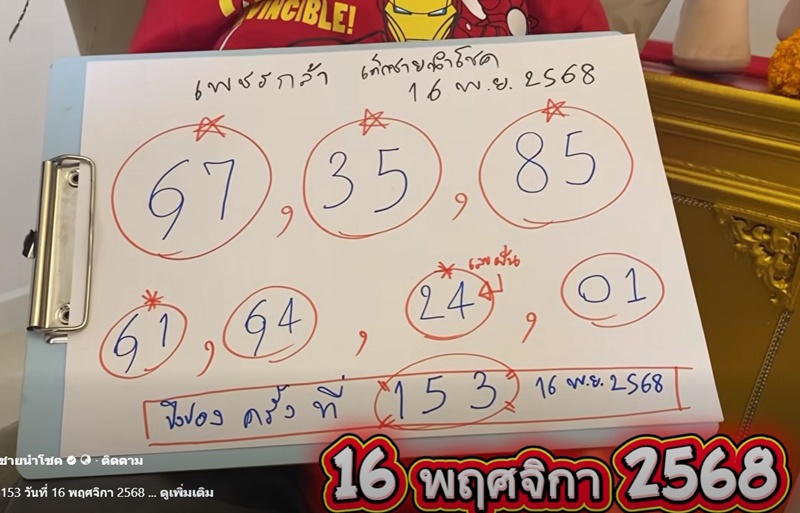 INVINCIBLE!
เพชรกล้า เด็กชายนำโชค
16 พ.ย. 2568
67 , 35 , 85
เลขฝัน
61 , 64 , 24 , 01
ปิงปอง ครั้งที่ 153 16 พ.ย. 2568
16 พฤศจิกา 2568
ชายนำโชค · ติดตาม
153 วันที่ 16 พฤศจิกา 2568 ... ดูเพิ่มเติม